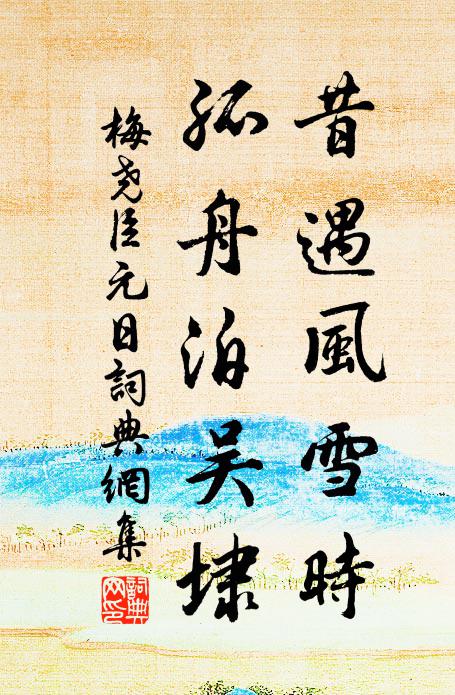 昔遇風雪時
孤舟泊吴埭
梅尧臣元日詞典網集